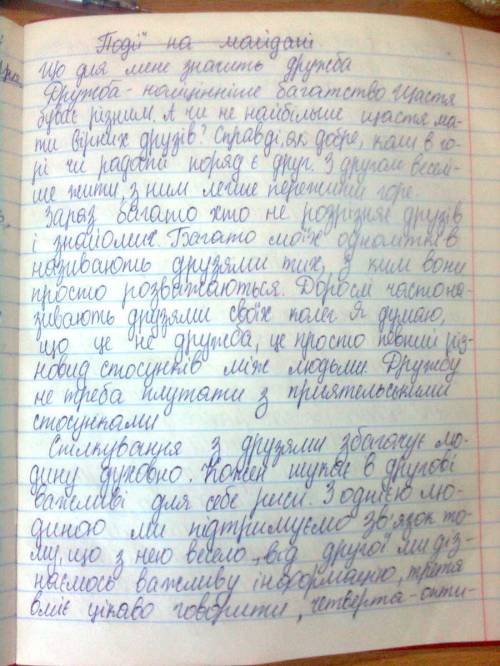 Події на майдані
Що для мене значить дружба
Дружба - найцінніше багатство. Щастя
буває різним. А чи не найбільше щастя ма-
ти вірних друзів? Справді, як добре, коли в го-
рі чи радості поряд є друг. З другом весел-
ше жити, з ним легше пережити горе.
Зараз багато хто не розрізняє друзів
і знайомих. Багато моїх однолітків
називають друзями тих, з ким вони
просто розважаються. Дорослі часто на-
зивають друзями своїх колег. Я думаю,
що це не дружба, це просто певний різ-
новид стосунків між людьми. Дружбу
не треба плутати з приятельськими
стосунками
Спілкування з друзями збагачує лю-
дину духовно. Кожен шукає в другові
важливі для себе риси. З однією лю-
диною ми підтримуємо зв'язок то-
му, що з нею весело, від другої ми діз-
наємося важливу інформацію, третя
вміє цікаво говорити, четверта - опти-